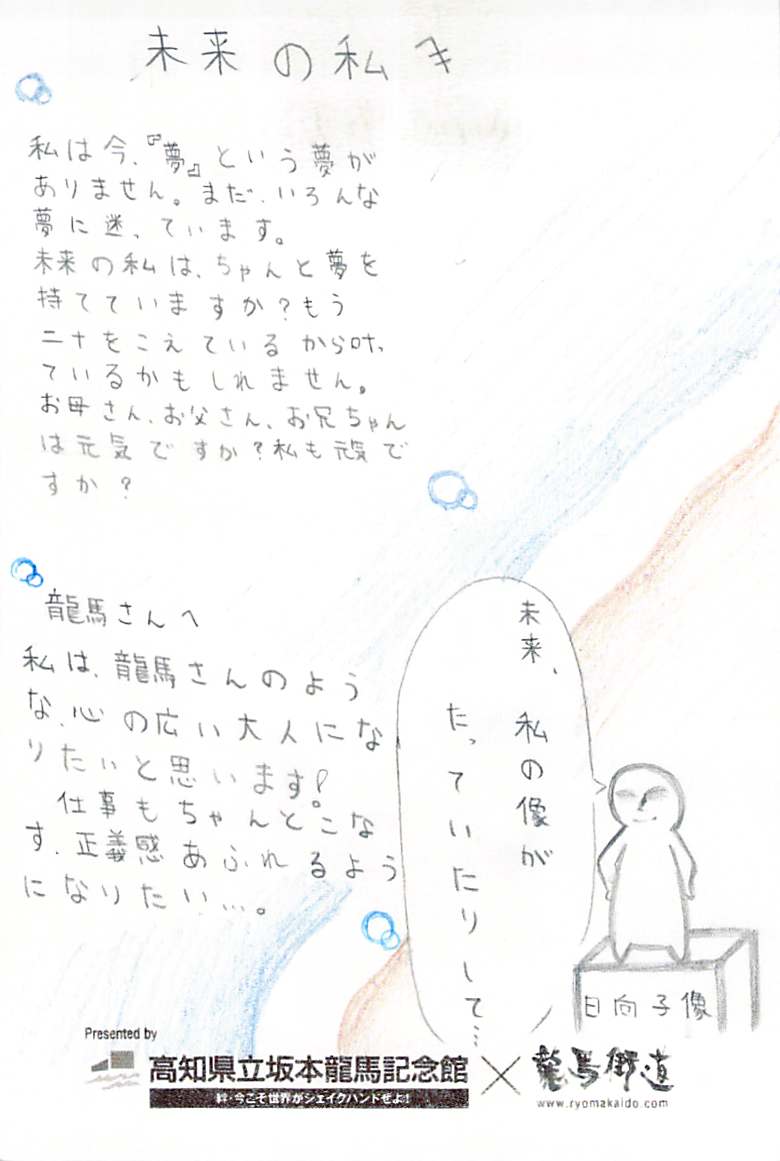 未来の私へ
私は今、『夢』という夢が
ありません。まだ、いろんな
夢に迷っています。
未来の私は、ちゃんと夢を
持てていますか?もう
二十をこえているから叶っ
ているかもしれません。
お母さん、お父さん、お兄ちゃん
は元気ですか?私も元気で
すか?
龍馬さんへ
私は、龍馬さんのよう
な、心の広い大人にな
りたいと思います!
仕事もちゃんとこな
す、正義感あふれるよう
になりたい…。
未来、私の像が
たっていたりして…
日向子像
Presented by
高知県立坂本龍馬記念館×龍馬街道
絆・今こそ世界がシェイクハンドぜよ!
www.ryomakaido.com